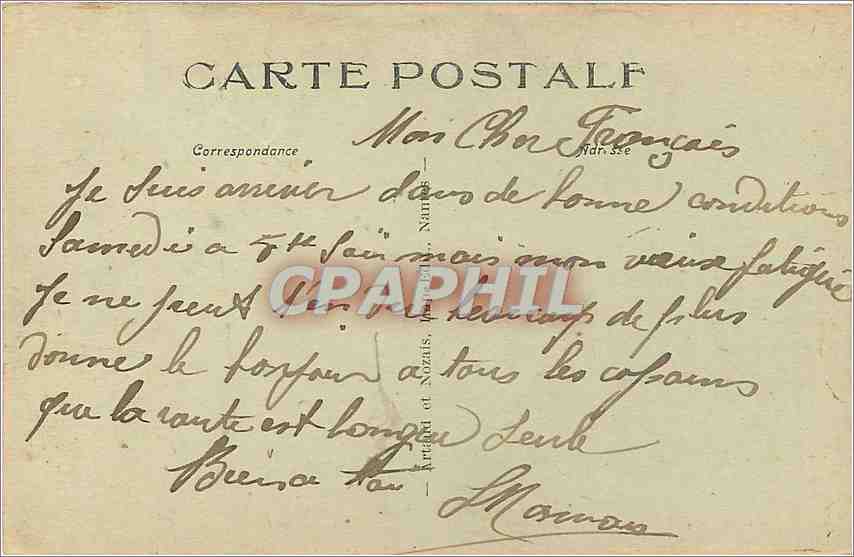 CARTE POSTALE
Mon Cher Français
Correspondance
Adresse
Je suis arriver dans de bonne conditions
Samedi a soir mais mon vieux fatigué
CPAPHIL
Je ne peut t'en dire beaucoup de plus
donne le bonjour a tous les copains
que la route est longue seule
Bien a toi
Artaud et Nozais, Edit., Nantes